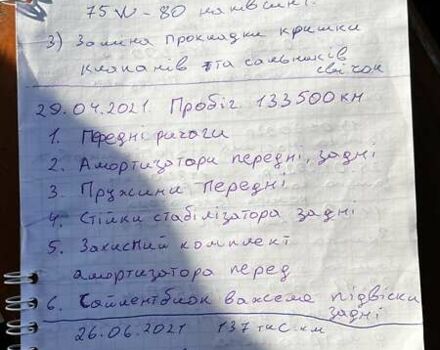 75W-80 напівсинт.
3) Заміна прокладки кришки
клапанів та сальників
свічок
29.04.2021 Пробіг 133500км
1. Передні ричаги
2. Амортизатори передні, задні
3. Пружини передні
4. Стійки стабілізатора задні
5. Захисний комплект
амортизатора перед
6. Сайлентблок важеля підвіски
задні
26.06.2021 137 тис. км